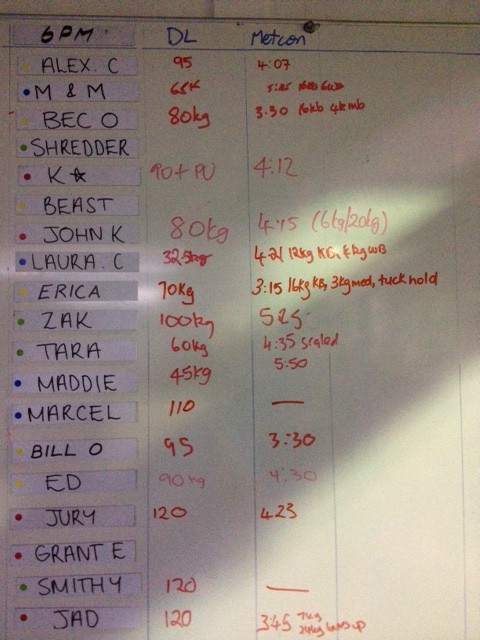 6PM DL Metcon
ALEX. C 95 4:07
M & M 65K
BEC O 80kg 3:30 16kb 4k mb
SHREDDER
K ☆ 90 + PU 4:12
BEAST
JOHN K 80kg 4:15 (16kg/20kg)
LAURA. C 32.5kg 4:21 12kg KB, 4kg WB
ERICA 70kg 3:15 16kg KB, 3kg med, tuck hold
ZAK 100kg 525
TARA 60kg 4:35 scaled
MADDIE 45kg 5:50
MARCEL 110 —
BILL O 95 3:30
ED 90kg 4:30
JURY 120 423
GRANT E
SMITHY 120 —
JAD 120 3:45 7kg
24kg